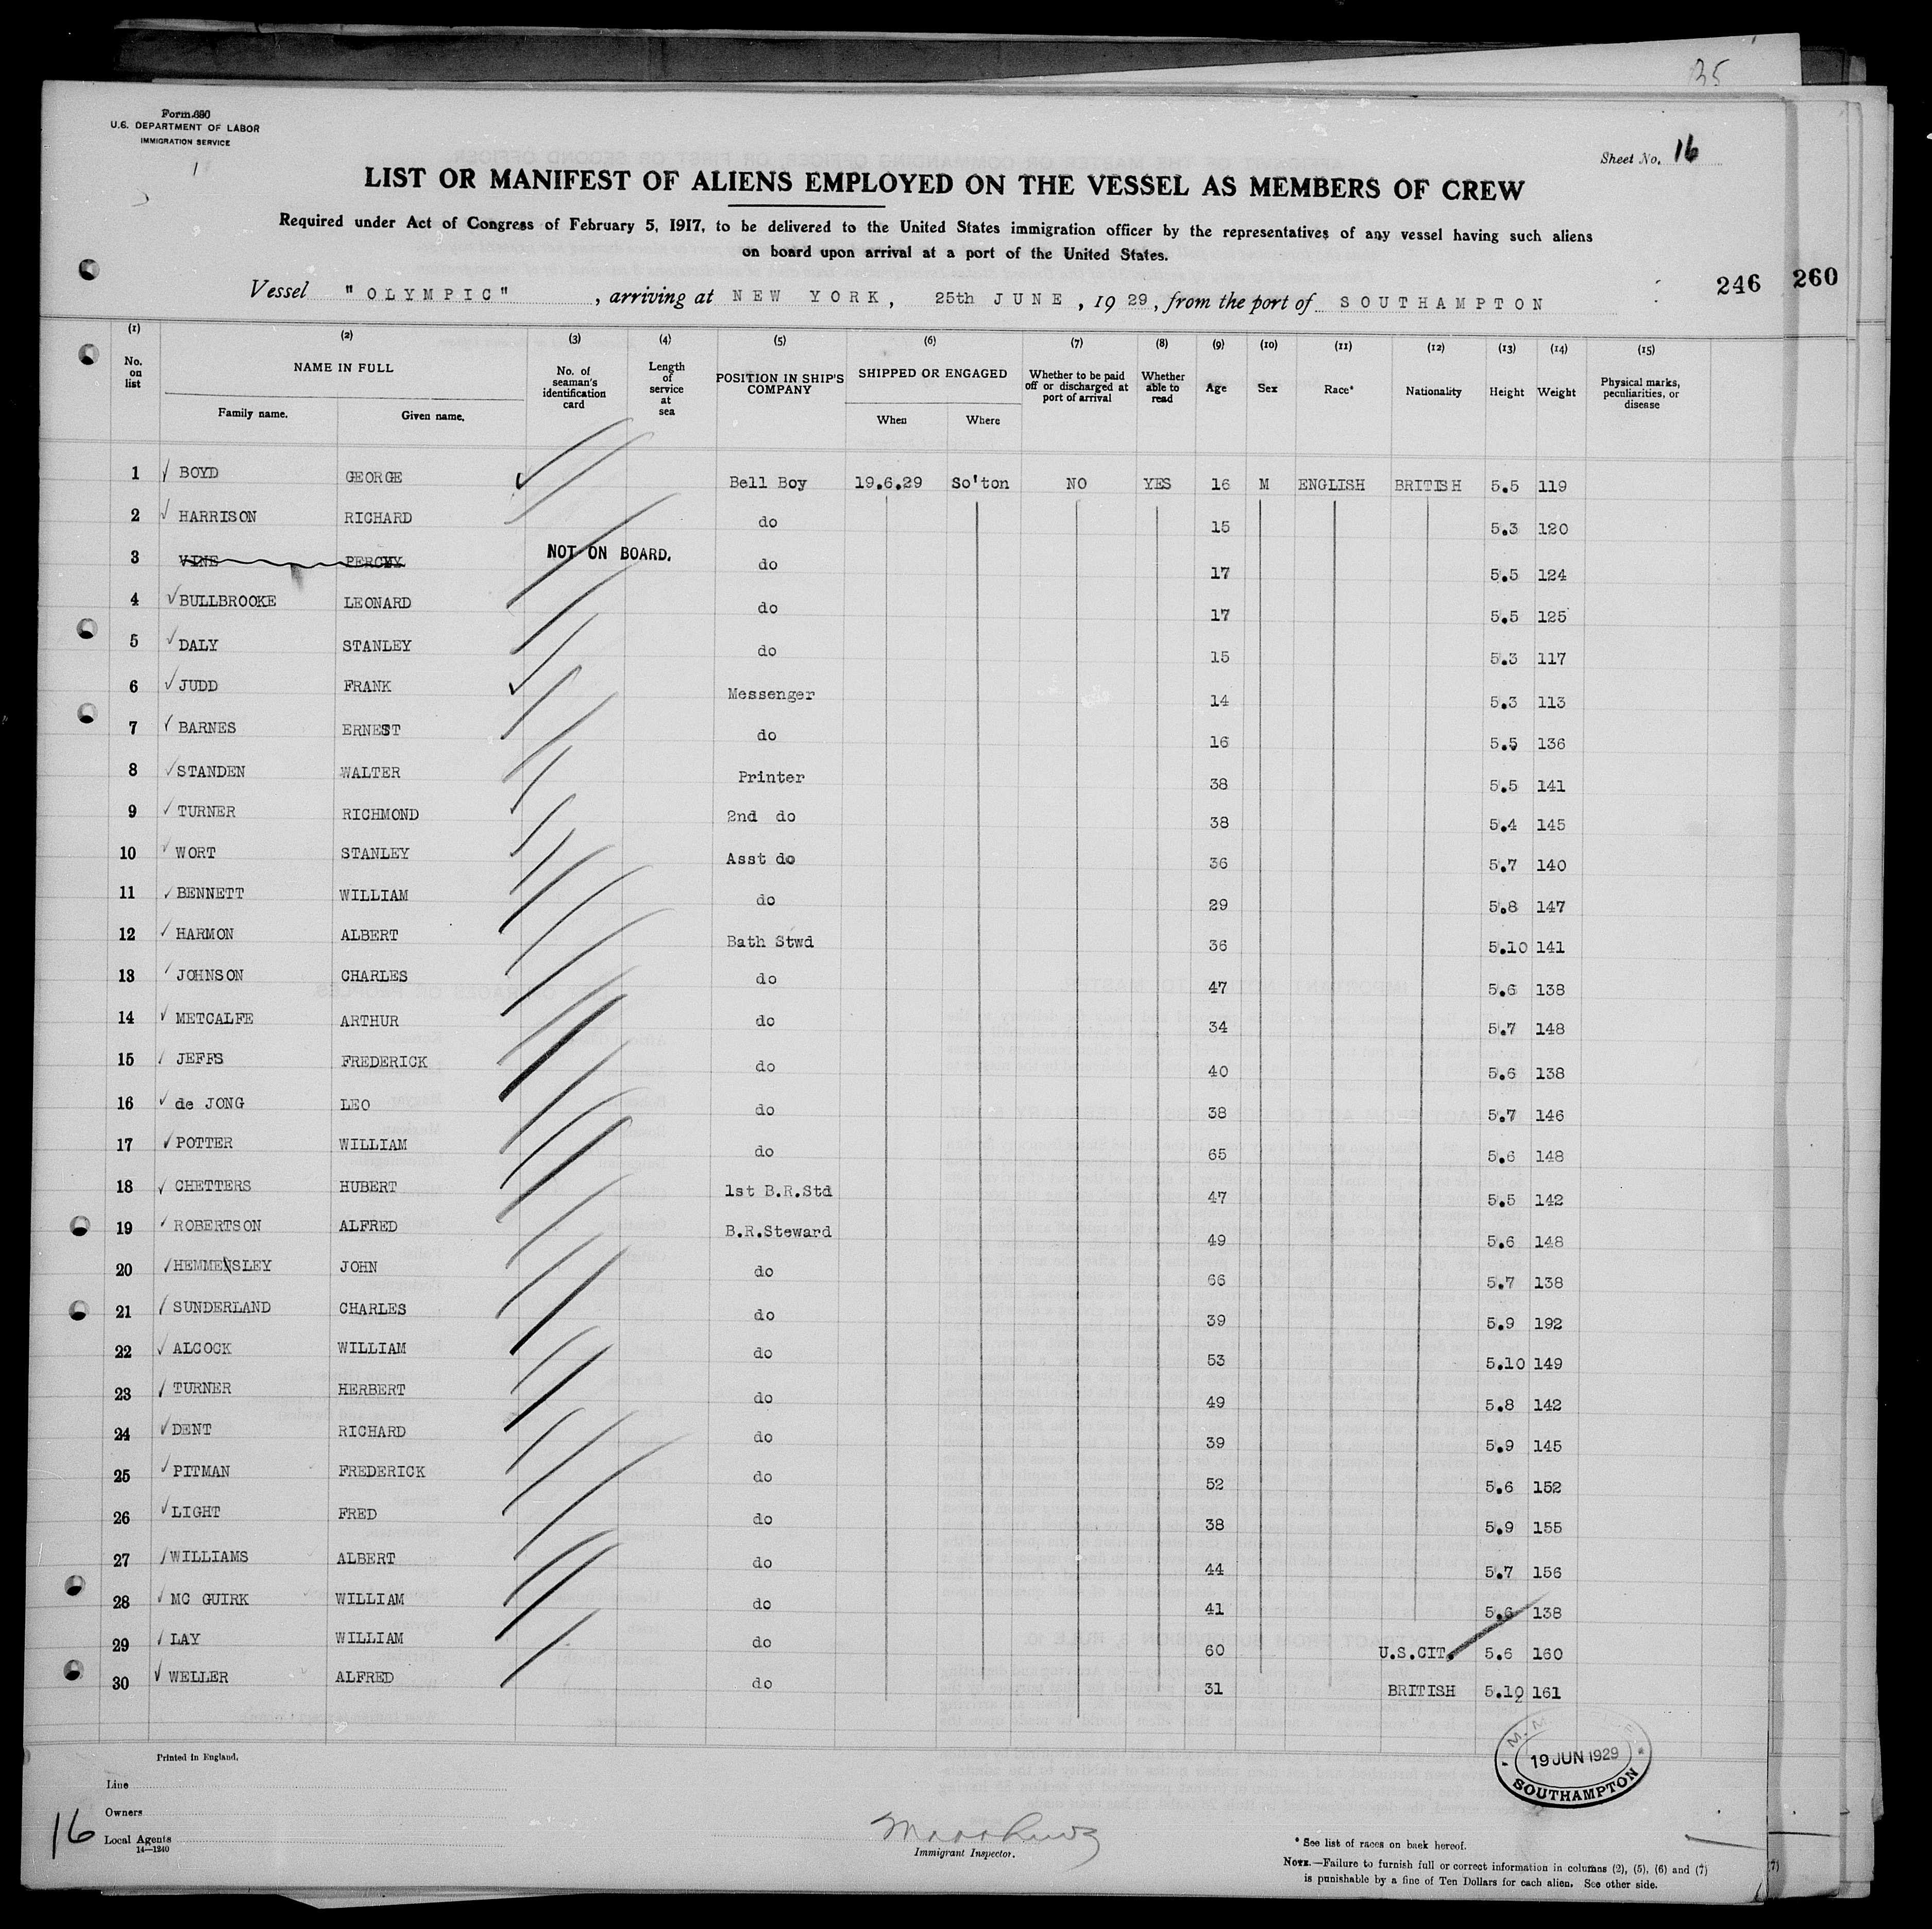 35
Form 680
U.S. DEPARTMENT OF LABOR
IMMIGRATION SERVICE
1
Sheet No. 16
LIST OR MANIFEST OF ALIENS EMPLOYED ON THE VESSEL AS MEMBERS OF CREW
Required under Act of Congress of February 5, 1917, to be delivered to the United States immigration officer by the representatives of any vessel having such aliens
on board upon arrival at a port of the United States.
Vessel "OLYMPIC", arriving at NEW YORK, 25th JUNE, 1929, from the port of SOUTHAMPTON
246 260
(1) (2) (3) (4) (5) (6) (7) (8) (9) (10) (11) (12) (13) (14) (15)
No. on list NAME IN FULL Family name. Given name. No. of seaman's identification card Length of service at sea POSITION IN SHIP'S COMPANY SHIPPED OR ENGAGED When Where Whether to be paid off or discharged at port of arrival Whether able to read Age Sex Race* Nationality Height Weight Physical marks, peculiarities, or disease
1 BOYD GEORGE Bell Boy 19.6.29 So'ton NO YES 16 M ENGLISH BRITISH 5.5 119
2 HARRISON RICHARD do 15 5.3 120
3 VINE PERCY NOT ON BOARD. do 17 5.5 124
4 BULLBROOKE LEONARD do 17 5.5 125
5 DALY STANLEY do 15 5.3 117
6 JUDD FRANK Messenger 14 5.3 113
7 BARNES ERNEST do 16 5.5 136
8 STANDEN WALTER Printer 38 5.5 141
9 TURNER RICHMOND 2nd do 38 5.4 145
10 WORT STANLEY Asst do 36 5.7 140
11 BENNETT WILLIAM do 29 5.8 147
12 HARMON ALBERT Bath Stwd 36 5.10 141
13 JOHNSON CHARLES do 47 5.6 138
14 METCALFE ARTHUR do 34 5.7 148
15 JEFFS FREDERICK do 40 5.6 138
16 de JONG LEO do 38 5.7 146
17 POTTER WILLIAM do 65 5.6 148
18 CHETTERS HUBERT 1st B.R.Std 47 5.5 142
19 ROBERTSON ALFRED B.R.Steward 49 5.6 148
20 HEMMENSLEY JOHN do 66 5.7 138
21 SUNDERLAND CHARLES do 39 5.9 192
22 ALCOCK WILLIAM do 53 5.10 149
23 TURNER HERBERT do 49 5.8 142
24 DENT RICHARD do 39 5.9 145
25 PITMAN FREDERICK do 52 5.6 152
26 LIGHT FRED do 38 5.9 155
27 WILLIAMS ALBERT do 44 5.7 156
28 MC GUIRK WILLIAM do 41 5.6 138
29 LAY WILLIAM do 60 U.S.CIT. 5.6 160
30 WELLER ALFRED do 31 BRITISH 5.10 161
19 JUN 1929
SOUTHAMPTON
Printed in England.
Line
Owners
Local Agents
14—1240
16
Immigrant Inspector.
* See list of races on back hereof.
NOTE.—Failure to furnish full or correct information in columns (2), (5), (6) and (7)
is punishable by a fine of Ten Dollars for each alien. See other side.